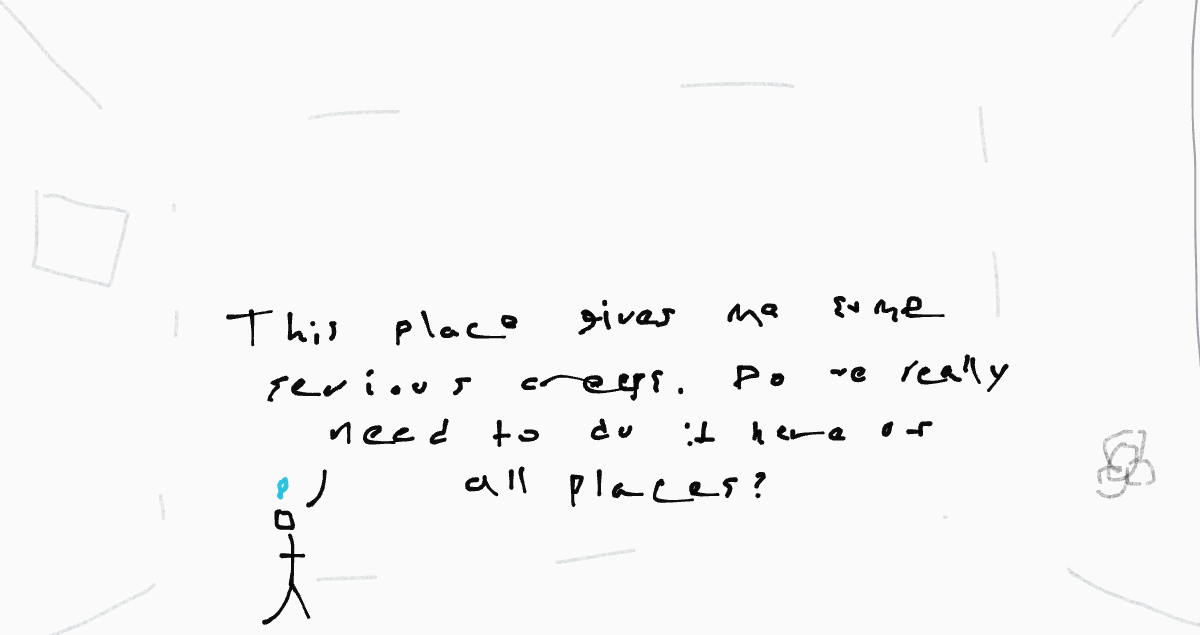 This place gives me some
serious creeps. Do we really
need to do it here of
all places?
P